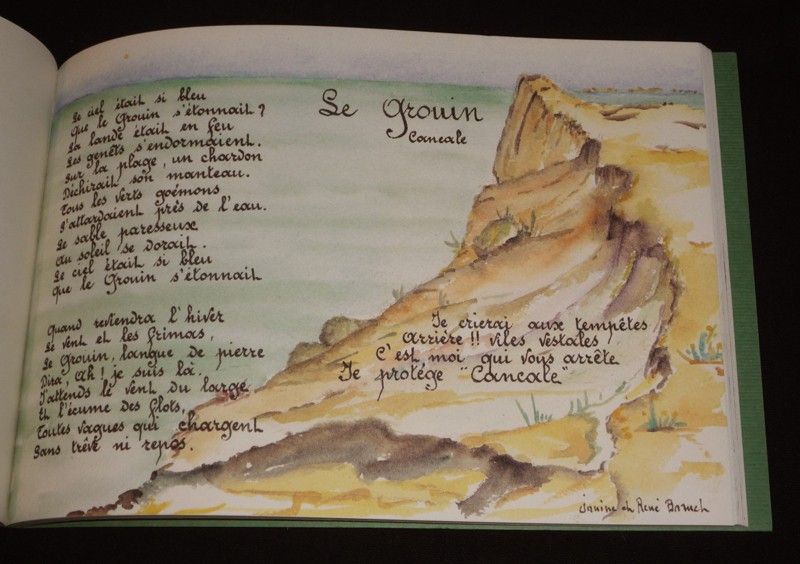 Le Grouin
Cancale
Le ciel était si bleu
Que le Grouin s'étonnait ?
La lande était en feu
Les genêts s'endormaient.
Sur la plage, un chardon
Déchirait son manteau.
Tous les verts goémons
S'attardaient près de l'eau.
Le sable paresseux
Au soleil se dorait.
Le ciel était si bleu
Que le Grouin s'étonnait
Quand reviendra l'hiver
Le vent et les frimas,
Le Grouin, langue de pierre
Dira, Ah ! je suis là.
J'attends le vent du large
Et l'écume des flots,
Toutes vagues qui chargent
Sans trêve ni repos.
Je crierai aux tempêtes
Arrière !! viles vestales
C'est moi qui vous arrête
Je protège "Cancale"
Janine et René